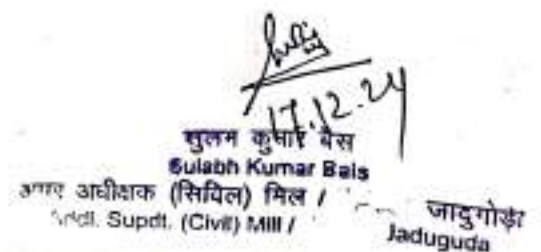 17.12.24
सुलभ कुमार बैस
Sulabh Kumar Bais
अधीक्षक (सिविल) मिल / जादुगोड़ा
Supdt. (Civil) Mill / Jaduguda